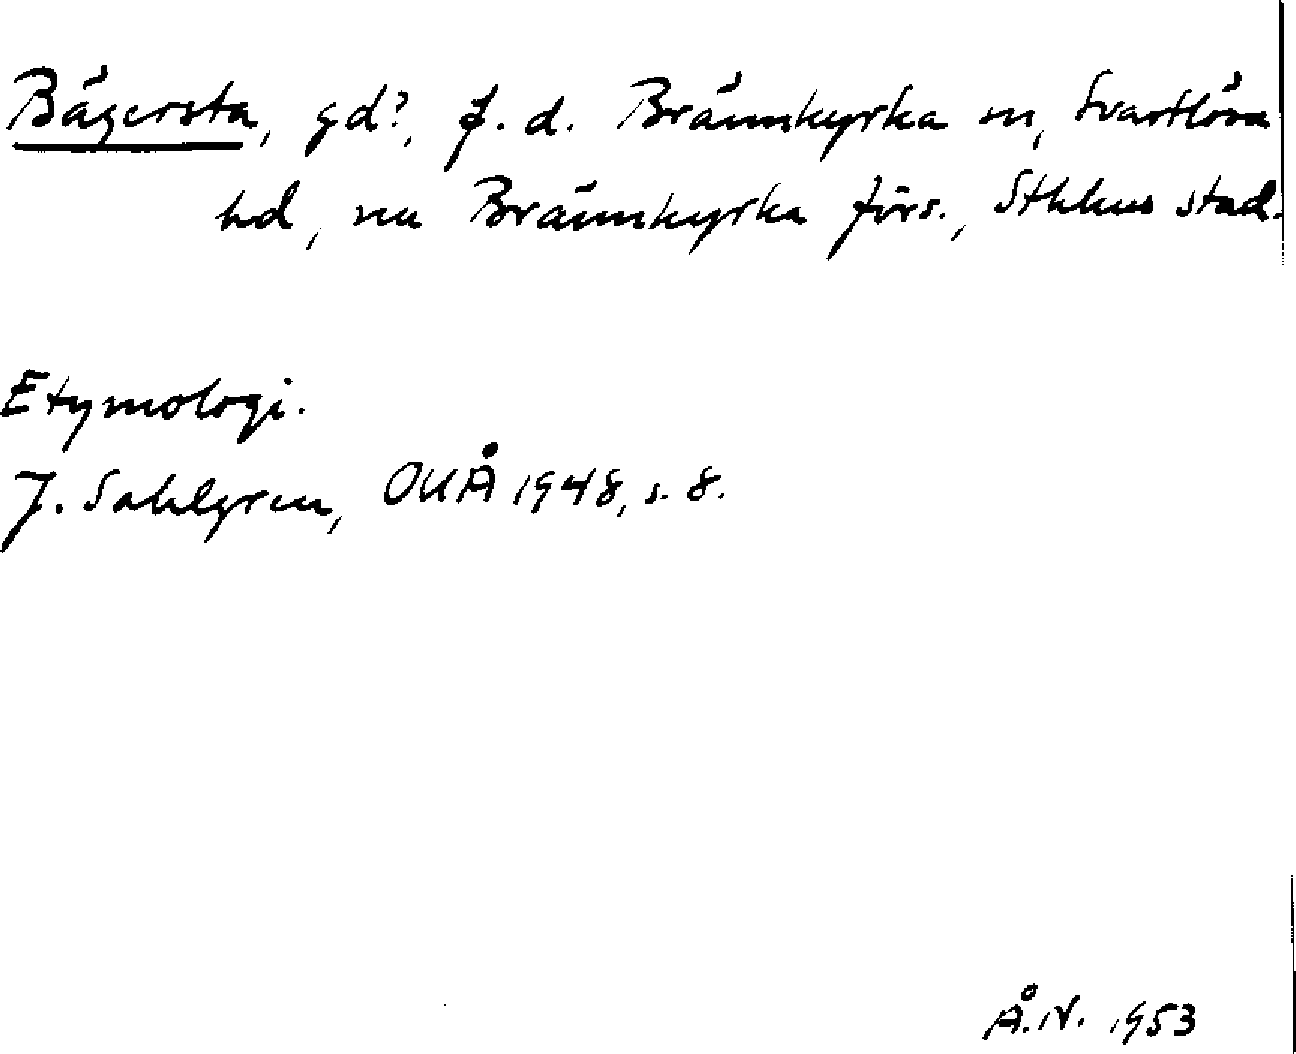 Bägersta, gd?, f.d. Brännkyrka sn, Svartlösa
hd, nu Brännkyrka förs., Sthlms stad.
Etymologi.
J. Sahlgren, OUÅ 1948, s. 8.
Å.N. 1953